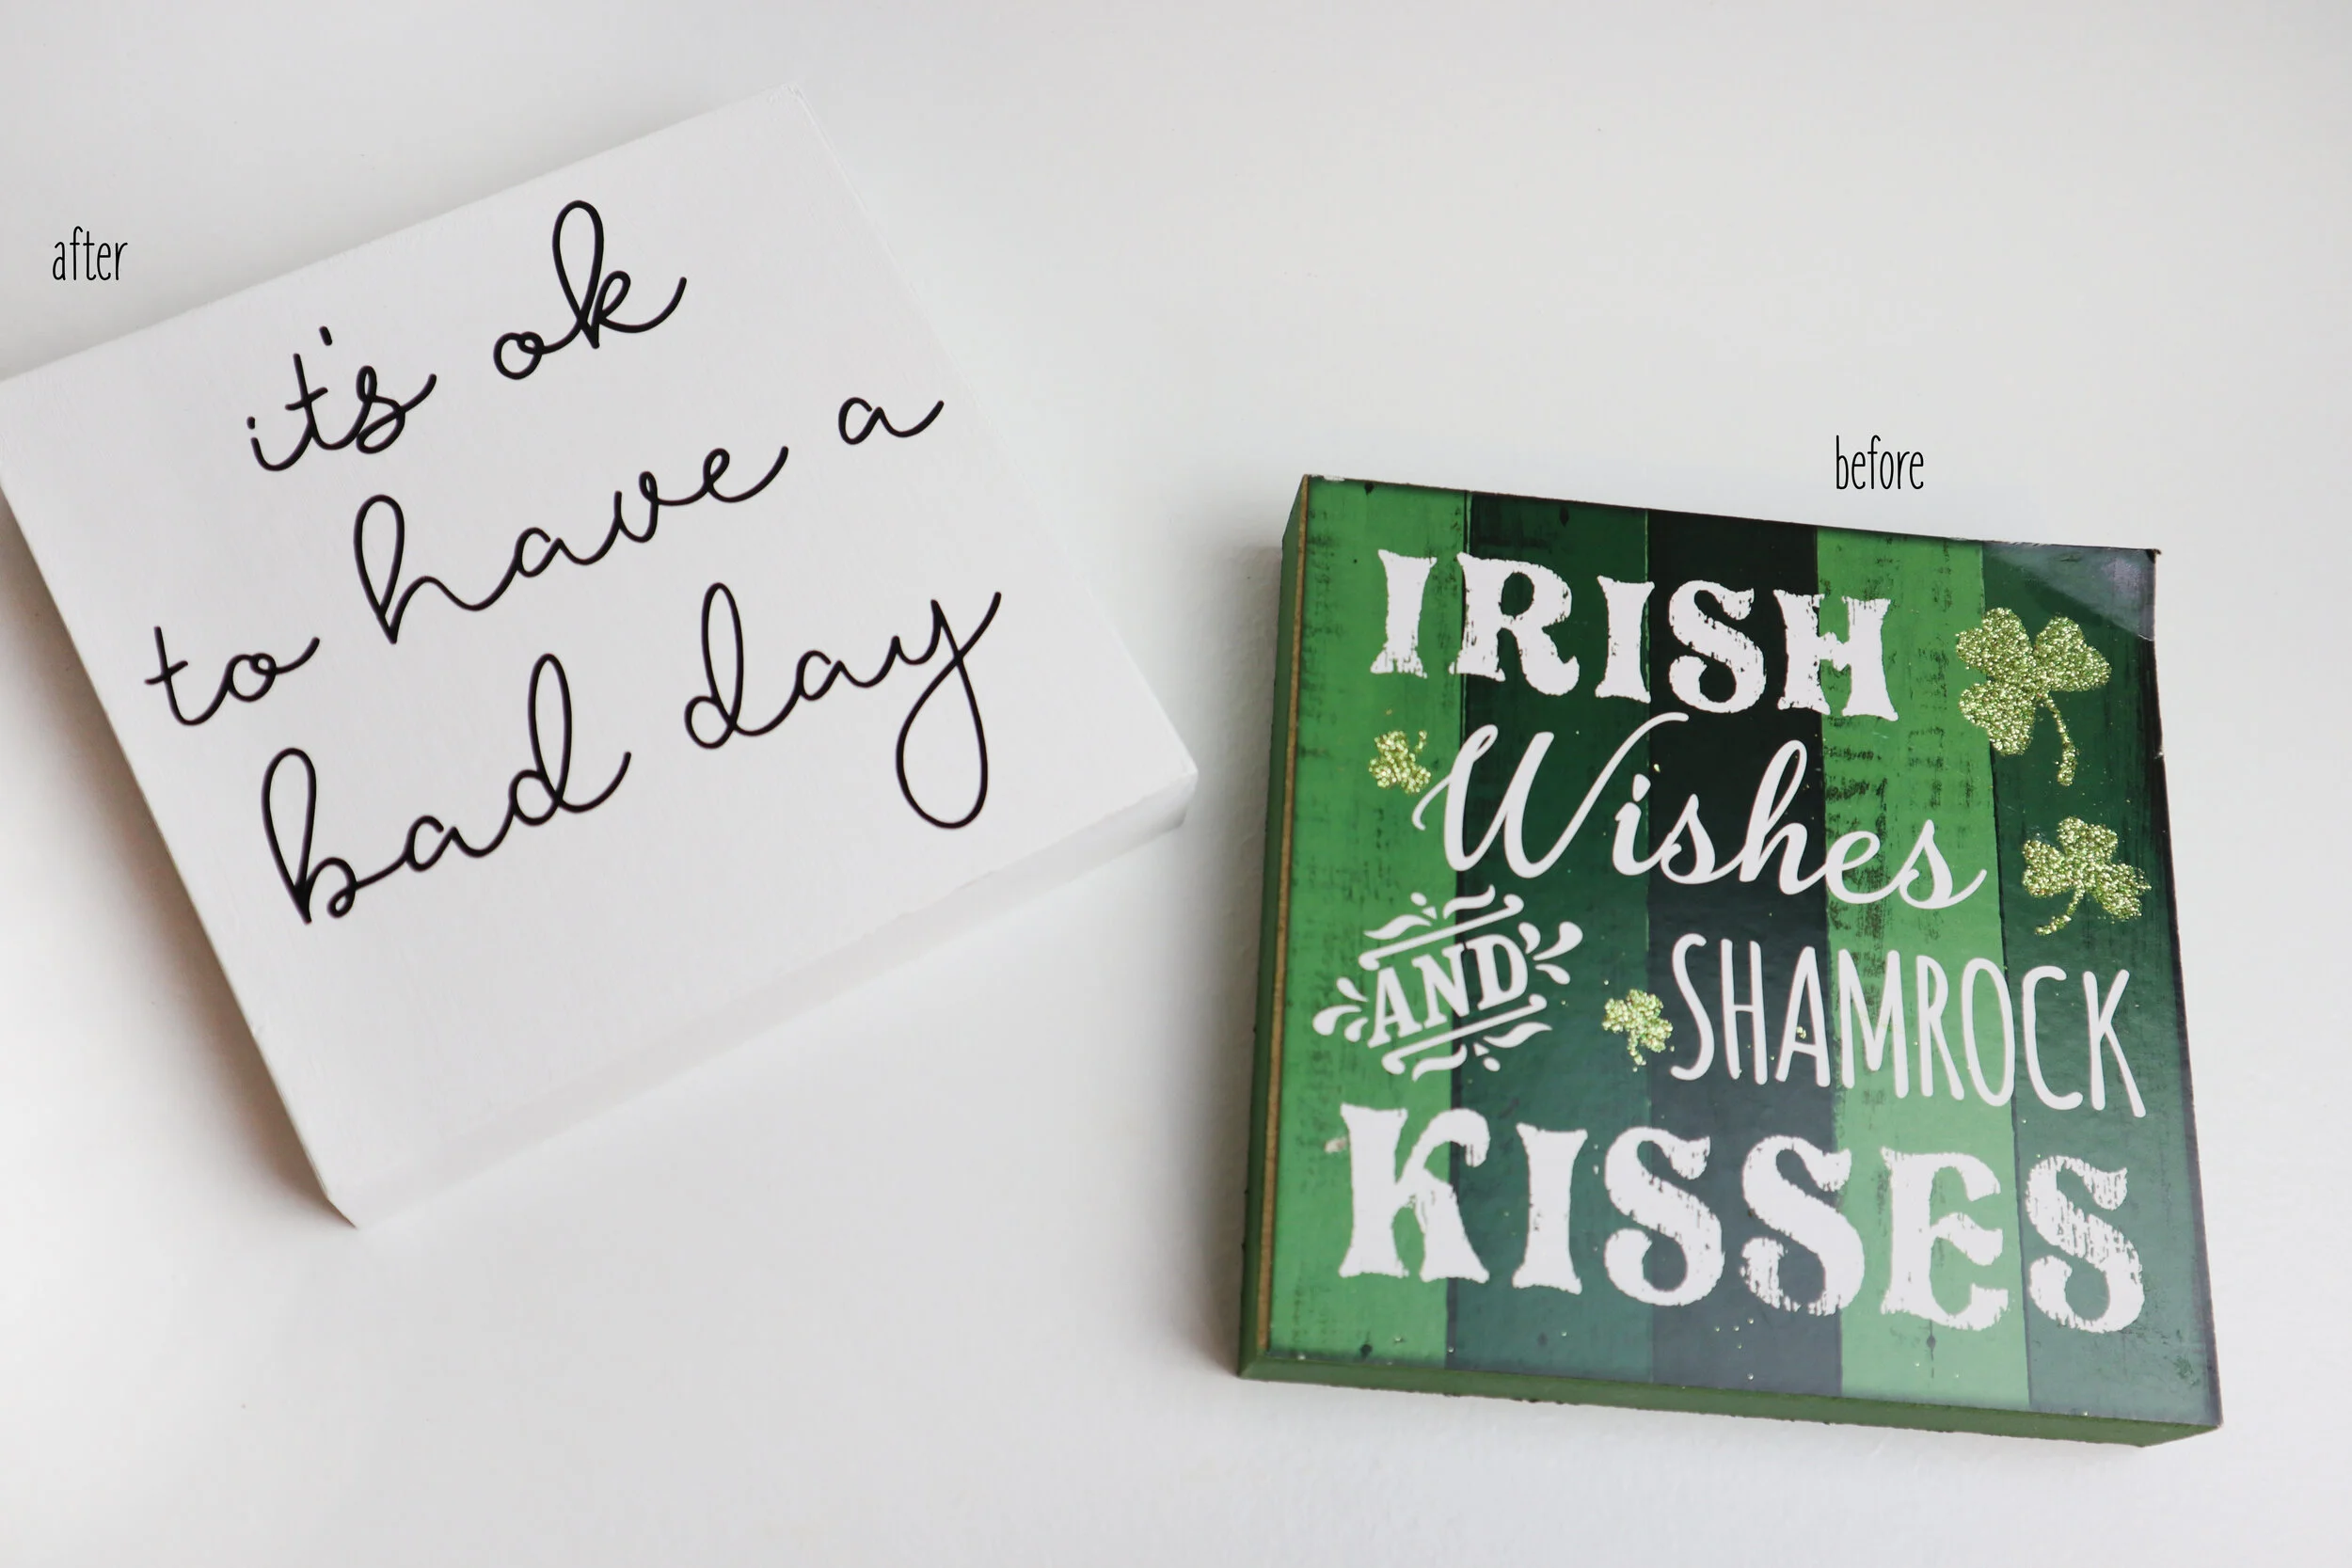 after
it's ok
to have a
bad day
before
IRISH
Wishes
AND SHAMROCK
KISSES